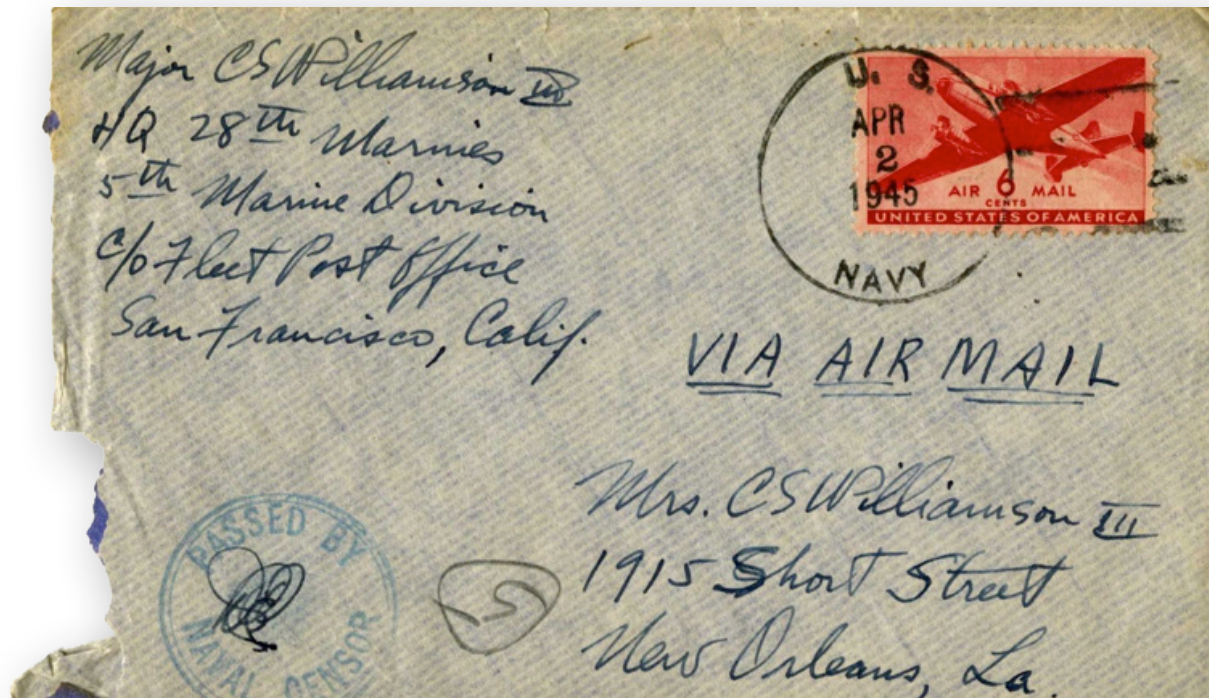 Major CSWilliamson III
HQ 28th Marines
5th Marine Division
c/o Fleet Post Office
San Francisco, Calif.
U. S.
APR
2
1945
NAVY
AIR 6 MAIL
CENTS
UNITED STATES OF AMERICA
VIA AIR MAIL
Mrs. CSWilliamson III
1915 Short Street
New Orleans, La.
PASSED BY
NAVAL CENSOR
5